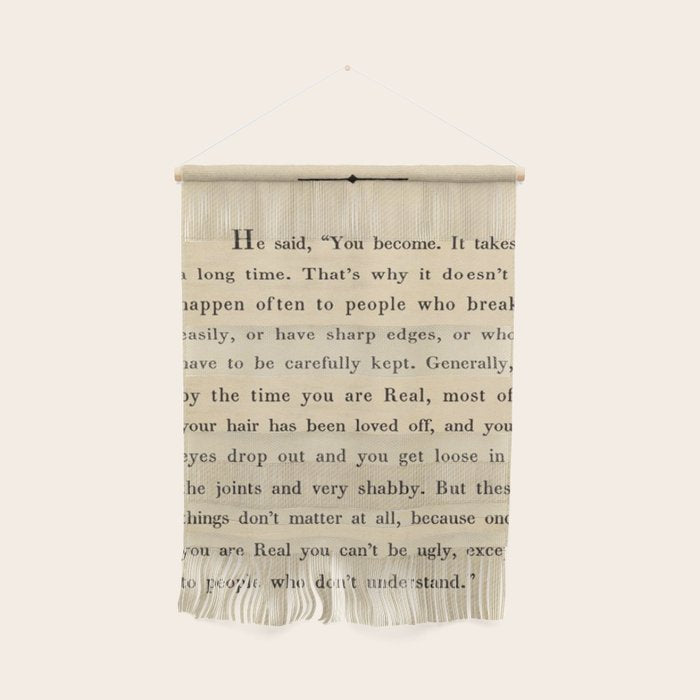 He said, “You become. It takes
a long time. That’s why it doesn’t
happen often to people who break
easily, or have sharp edges, or who
have to be carefully kept. Generally,
by the time you are Real, most of
your hair has been loved off, and you
eyes drop out and you get loose in
the joints and very shabby. But thes
things don’t matter at all, because onc
you are Real you can’t be ugly, exce
to people who don’t understand.”